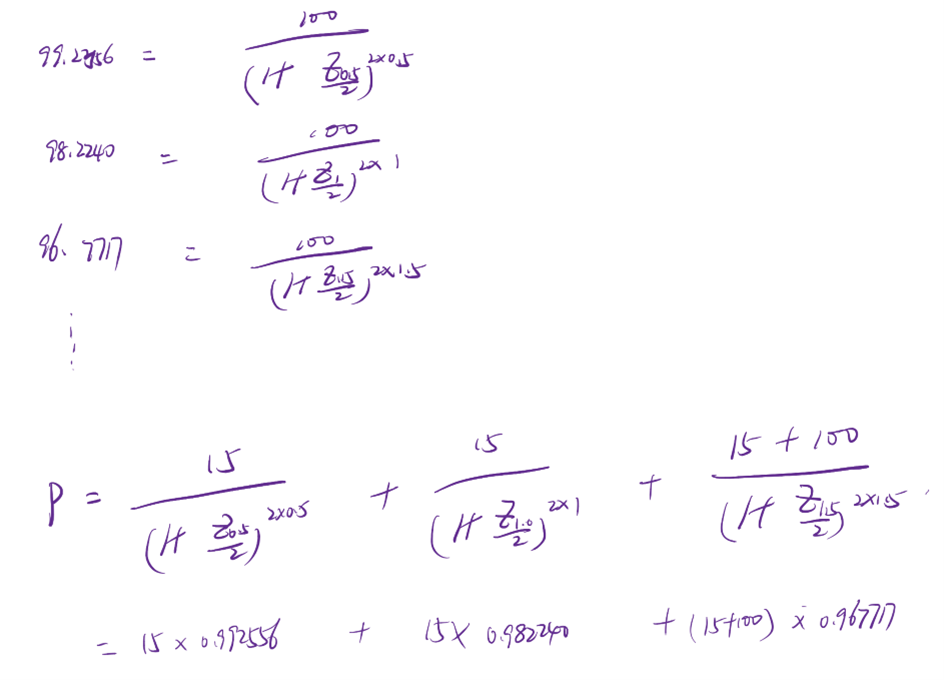 99.2556 = 100 / (1+ Z0.5/2)^2×0.5
98.2240 = 100 / (1+ Z1/2)^2×1
96.7717 = 100 / (1+ Z1.5/2)^2×1.5
P = 15 / (1+ Z0.5/2)^2×0.5 + 15 / (1+ Z1.0/2)^2×1 + 15 + 100 / (1+ Z1.5/2)^2×1.5
= 15 × 0.992556 + 15 × 0.982240 + (15+100) × 0.967717